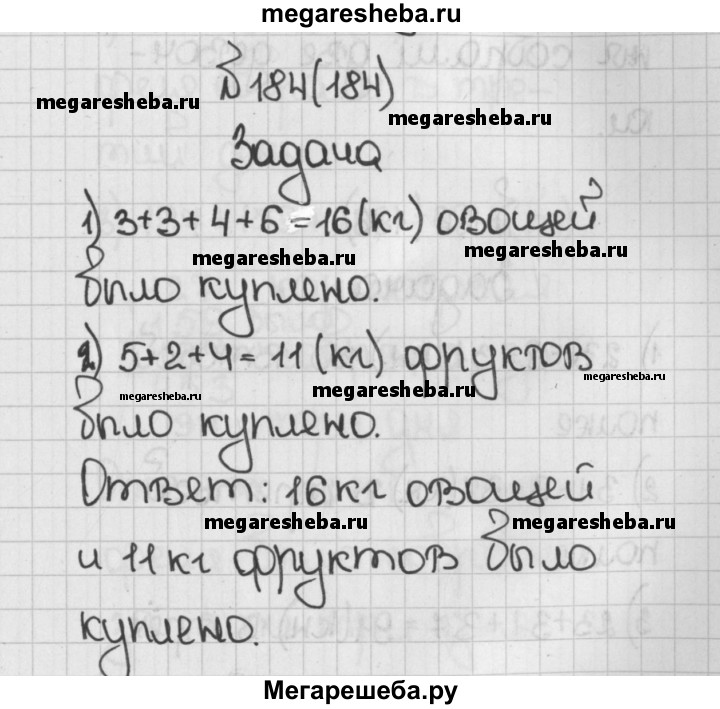 megaresheba.ru
№ 184(184)
megaresheba.ru
megaresheba.ru
Задача
1) 3+3+4+6=16(кг) овощей
megaresheba.ru
megaresheba.ru
было куплено.
2) 5+2+4=11(кг) фруктов
megaresheba.ru
megaresheba.ru
megaresheba.ru
было куплено.
Ответ: 16 кг овощей
megaresheba.ru
megaresheba.ru
и 11 кг фруктов было
куплено.
Мегарешеба.ру